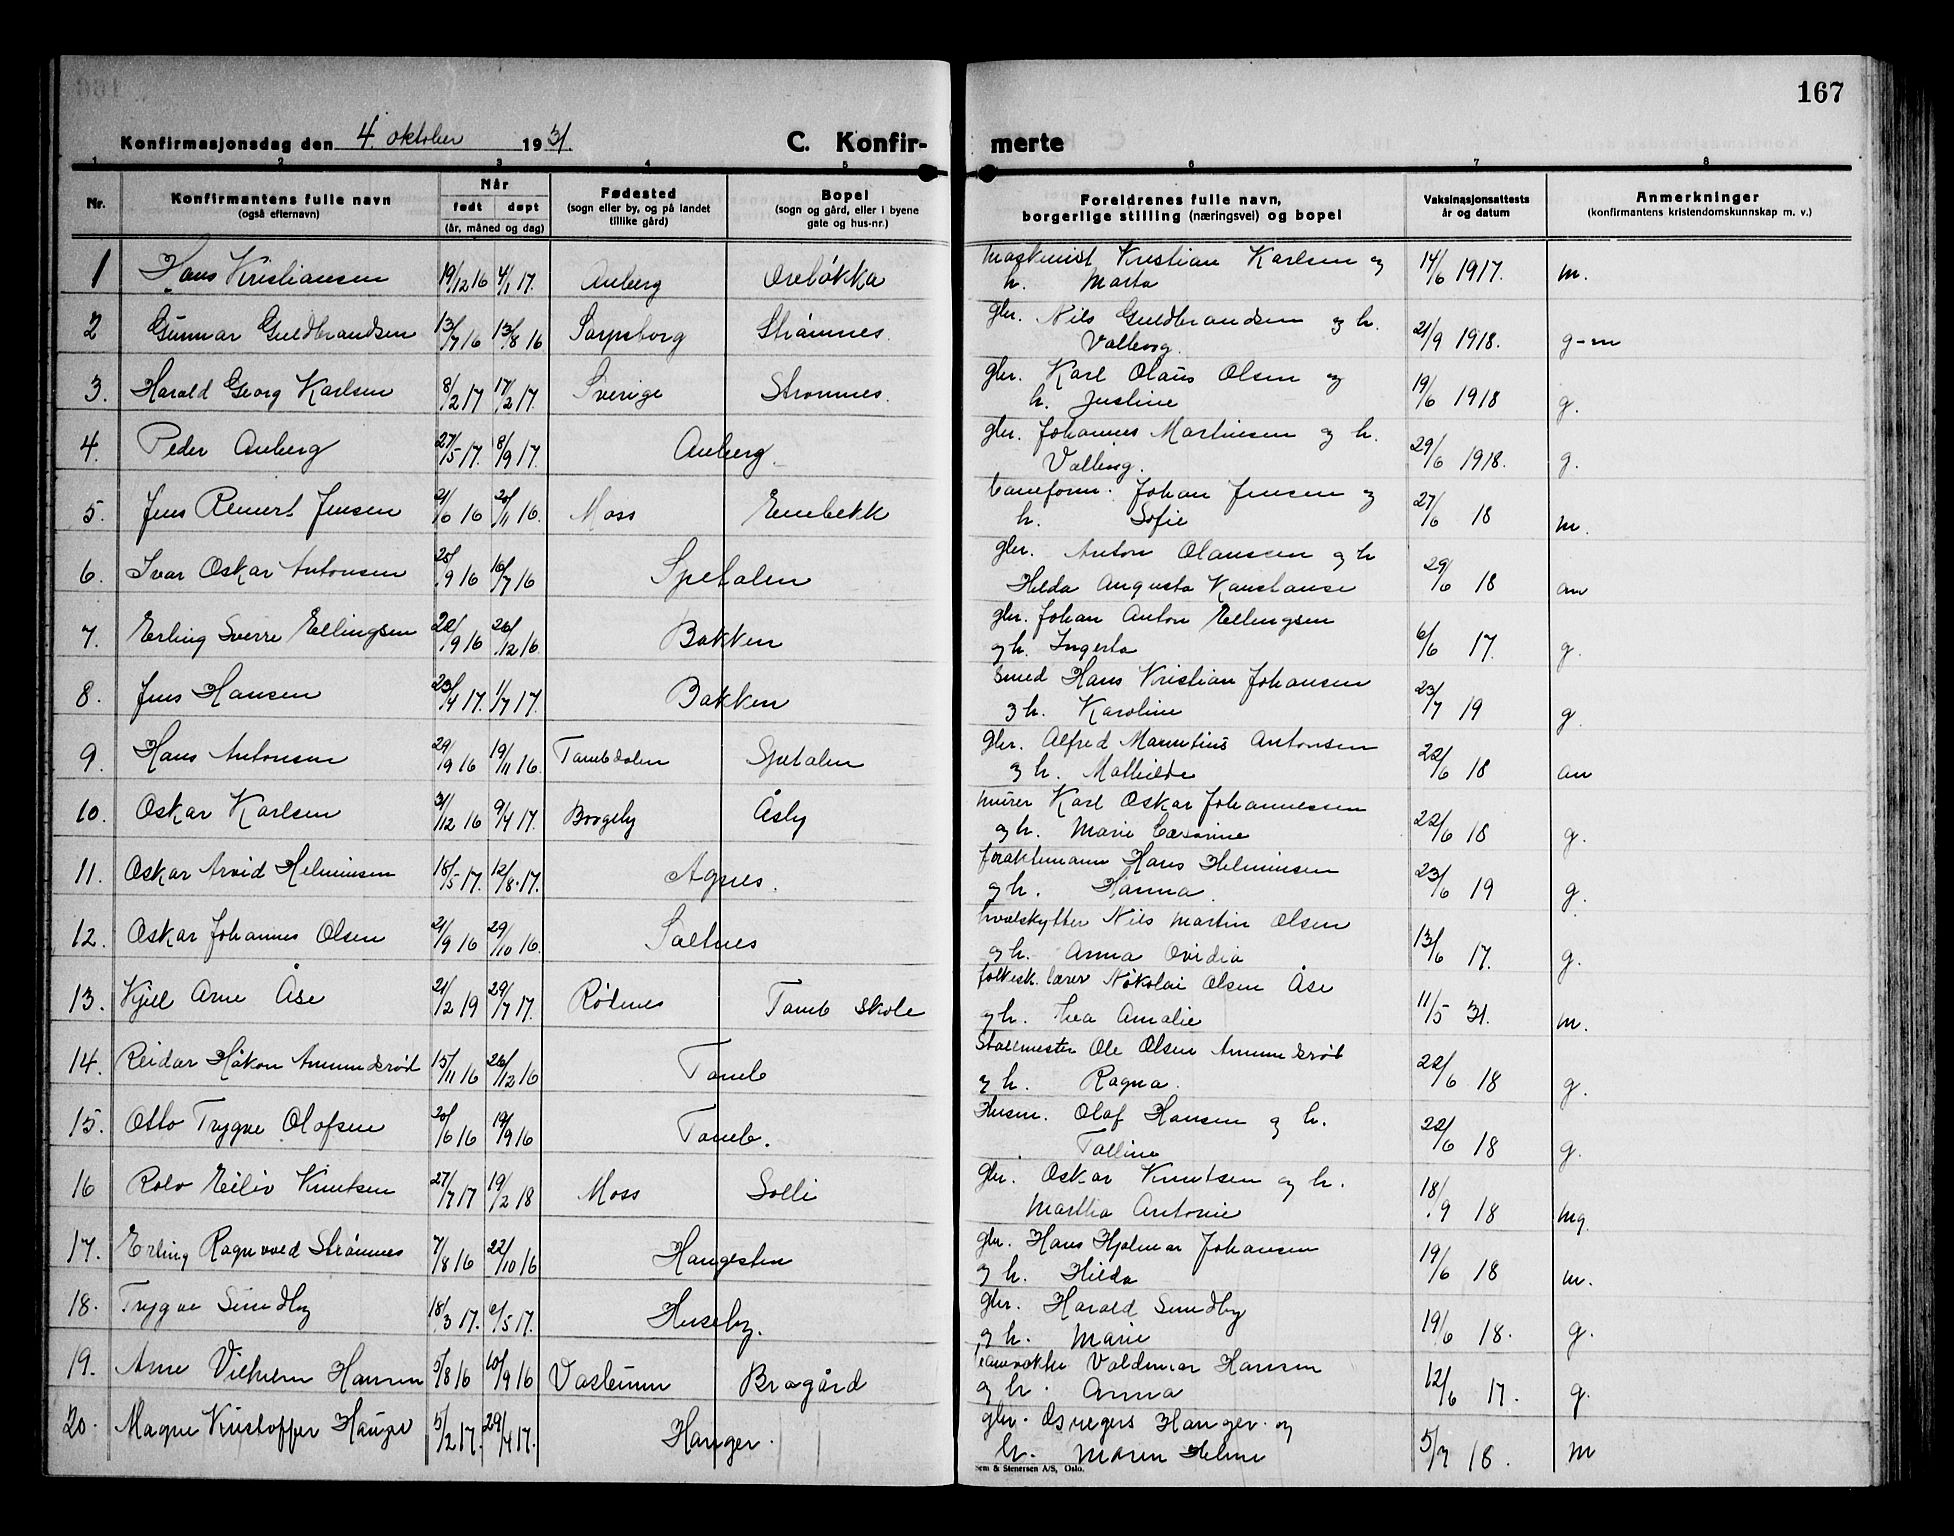 167
Konfirmasjonsdag den 4. oktober 1931.
C. Konfir- merte
1 2 3 4 5 6 7 8
Nr. Konfirmantens fulle navn (også efternavn) Når født døpt (år, måned og dag) Fødested (sogn eller by, og på landet tillike gård) Bopel (sogn og gård, eller i byene gate og hus-nr.) Foreldrenes fulle navn, borgerlige stilling (næringsvei) og bopel Vaksinasjonsattests år og datum Anmerkninger (konfirmantens kristendomskunnskap m. v.)
1 Hans Kristiansen 19/12 16 4/1 17. Auberg Oreløkka Maskinist Kristian Karlsen og 14/6 1917. m.
h. Marta
2 Gunnar Guldbrandsen 13/7 16 13/8 16 Sarpsborg Strømnes. gbr. Nils Guldbrandsen og h. 21/9 1918. g-m
Valborg.
3. Harald Georg Karlsen 8/2 17 17/2 17. Sverige Strømnes. gbr. Karl Olaus Olsen og 19/6 1918 g.
h. Justine
4. Peder Auberg 27/5 17. 8/9 17. Auberg. gbr. Johannes Martinsen og h. 29/6 1918. g.
Valborg.
5. Jens Reinert Jensen 21/10 16 20/11 16. Moss Enebekk Johan Jensen og 27/6 18 m.
h. Sofie
6. Ivar Oskar Antonsen 25/9 16 16/7 16 Spetalen gbr. Anton Olaussen og h 29/6 18 an
Hilda Augusta Konstanse
7. Erling Sverre Ellingsen 20/9 16 26/12 16. Bakken gbr. Johan Anton Ellingsen 6/6 17. g.
og h. Ingerta
8. Jens Hansen 23/4 17. 1/7 17. Bakken Smed Hans Kristian Johansen 23/7 19 g.
og h. Karoline
9. Hans Antonsen 29/9 16 19/11 16. Tombdalen Spetalen gbr. Alfred Mauritius Antonsen 22/6 18 an
og h. Mathilde
10. Oskar Karlsen 31/12 16 9/4 17. Borgeby Åsby murer Karl Oskar Johannessen 22/6 18 g.
og h. Marie
11. Oskar Arvid Helminsen 18/5 17. 12/8 17. Agnes. fraktemann Hans Helminsen 23/6 19 g.
og h. Hanna
12. Oskar Johannes Olsen 21/9 16 29/10 16. Saltnes hvalskytter Nils Martin Olsen 13/6 17. g.
og h. Anna Ovidia
13. Kjell Arne Åse 21/2 19 29/7 17. Rødenes Tomb skole folkesk. lærer Nikolai Olsen Åse 11/5 31. m.
og h. Thea Amalie
14. Reidar Håkon Amundsrød 15/11 16 26/12 16 Tomb Stallmester Ole Olsen Amundsrød 22/6 18 g.
og h. Ragna.
15. Otto Trygve Olafsen 20/6 16 19/9 16 Tomb. Husm. Olaf Hansen og h. 22/6 18 g.
Talline
16 Rolv Eiliv Knutsen 27/7 17 19/2 18 Moss Solli gbr. Oskar Knutsen og h. 18/9 18 mg
Martha Antonie
17. Erling Ragnvald Strømnes 7/8 16 22/10 16 Haugesten gbr. Hans Hjalmar Johansen 19/6 18 m.
og h. Hilda
18. Trygve Sundby 18/3 17. 6/5 17. Huseby. gbr. Harald Sundby 19/6 18. g.
og h. Marie
19. Arne Vilhelm Hansen 5/8 16 10/9 16 Vasteinen Bragård Valdemar Hansen 12/6 17. g.
og h. Anna
20. Magne Kristoffer Hauger 5/2 17. 29/4 17. Hauger. gbr. Hauger og 5/7 18. m
h. Maren Helene
Sem & Stenersen A/S, Oslo.